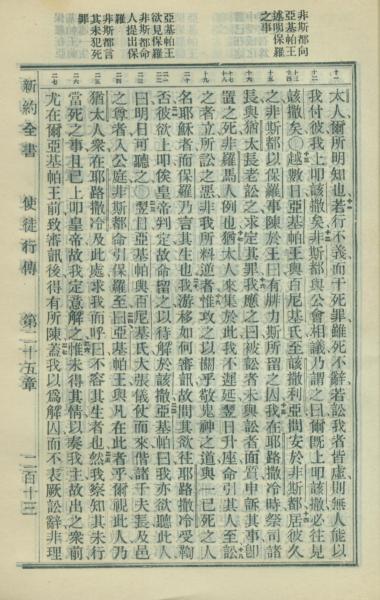 非斯都向
亞基帕王
述明保羅
之事
亞基帕王
欲見保羅
非斯都命
人提出保
羅
非斯都言
其未犯死
罪
太人爾所明知也若行不義而干死罪雖死不辭若訟我者皆虛則無人能以
我付彼我上叩該撒矣非斯都與公會相議乃謂之曰爾旣上叩該撒必往見
該撒矣〇越數日亞基帕王與百尼基氏至該撒利亞問安於非斯都居彼久
之非斯都以保羅事陳於王曰有腓力斯所留之囚我在耶路撒冷時祭司諸
長與猶太長老訟之求定其罪我應之曰被訟者未與訟者面質申訴其事卽
置之死非羅馬人例也猶太人來集於此我不遲延翌日升座命引其人至訟
之者立所訟之惡非我所料逆者惟攻之以關乎敬鬼神之道與一已死之人
名耶穌者而保羅乃言其生也我游移如何審訊故問其欲往耶路撒冷受鞫
否彼欲上叩俟皇帝判定故命留之以待解於該撒亞基帕曰我亦欲聽此人
曰明日可聽之〇翌日亞基帕與百尼基氏大張儀仗而來偕諸千夫長及邑
之尊者入公庭非斯都命引保羅至曰亞基帕王與凡在此者乎爾視此人乃
猶太人衆在耶路撒冷及此處求我而呼曰不容其生者也然我察知其未行
當死之事且已上叩皇帝故我定意解之惟未得其情以奏我主故出之衆前
尤在爾亞基帕王前致審訊後得有所陳蓋我以爲解囚而不表厥訟辭非理
新約全書 使徒行傳 第二十五章 二百十三